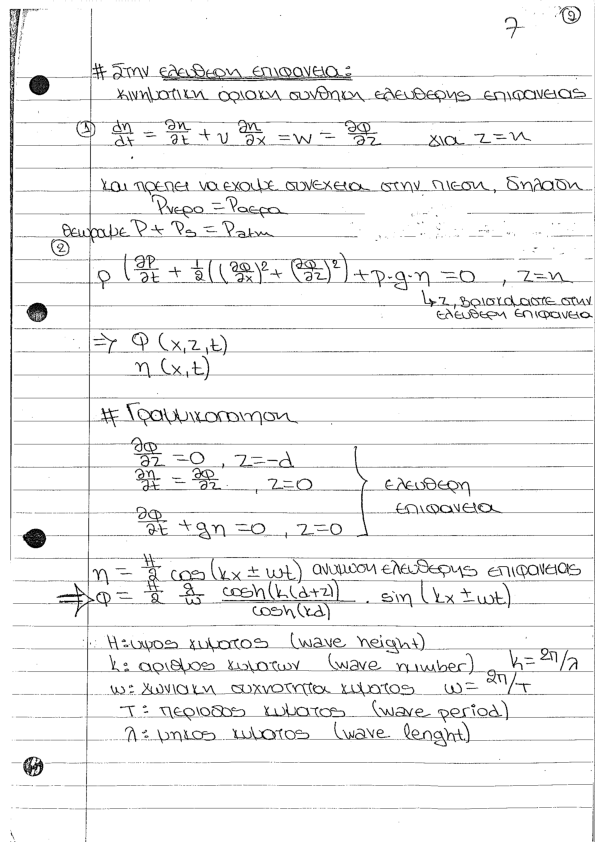 7 ②
# Στην ελευθερη επιφανεια:
κινηματικη οριακη συνθηκη ελευθερης επιφανειας
① dη/dt = ∂η/∂t + υ ∂η/∂x = w = ∂φ/∂z για z=η
και πρεπει να εχουμε συνεχεια στην πιεση, δηλαδη
Pνερο = Pαερα
θεωρουμε P + Ps = Patm
②
ρ (∂P/∂t + 1/2((∂φ/∂x)² + (∂φ/∂z)²) + ρ·g·η = 0 , z=η
↳ z, βρισκομαστε στην
ελευθερη επιφανεια
=> φ (x,z,t)
η (x,t)
# Γραμμικοποιηση
∂φ/∂z = 0 , z=-d
∂η/∂t = ∂φ/∂z , z=0
ελευθερη
επιφανεια
∂φ/∂t + gη = 0 , z=0
η = H/2 cos(kx ± ωt) ανυψωση ελευθερης επιφανειας
=> φ = H/2 g/ω cosh(k(d+z))/cosh(kd) · sin(kx ± ωt)
H: υψος κυματος (wave height)
k: αριθμος κυματων (wave number) k = 2π/λ
ω: γωνιακη συχνοτητα κυματος ω = 2π/T
T: περιοδος κυματος (wave period)
λ: μηκος κυματος (wave lenght)